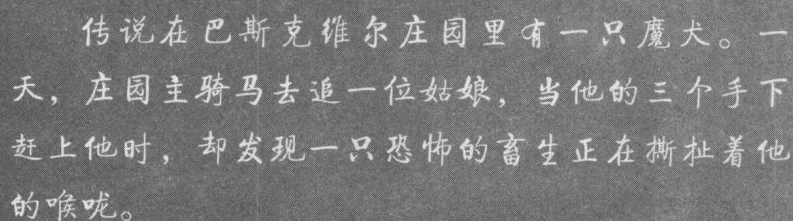 传说在巴斯克维尔庄园里有一只魔犬。一
天，庄园主骑马去追一位姑娘，当他的三个手下
赶上他时，却发现一只恐怖的畜生正在撕扯着他
的喉咙。